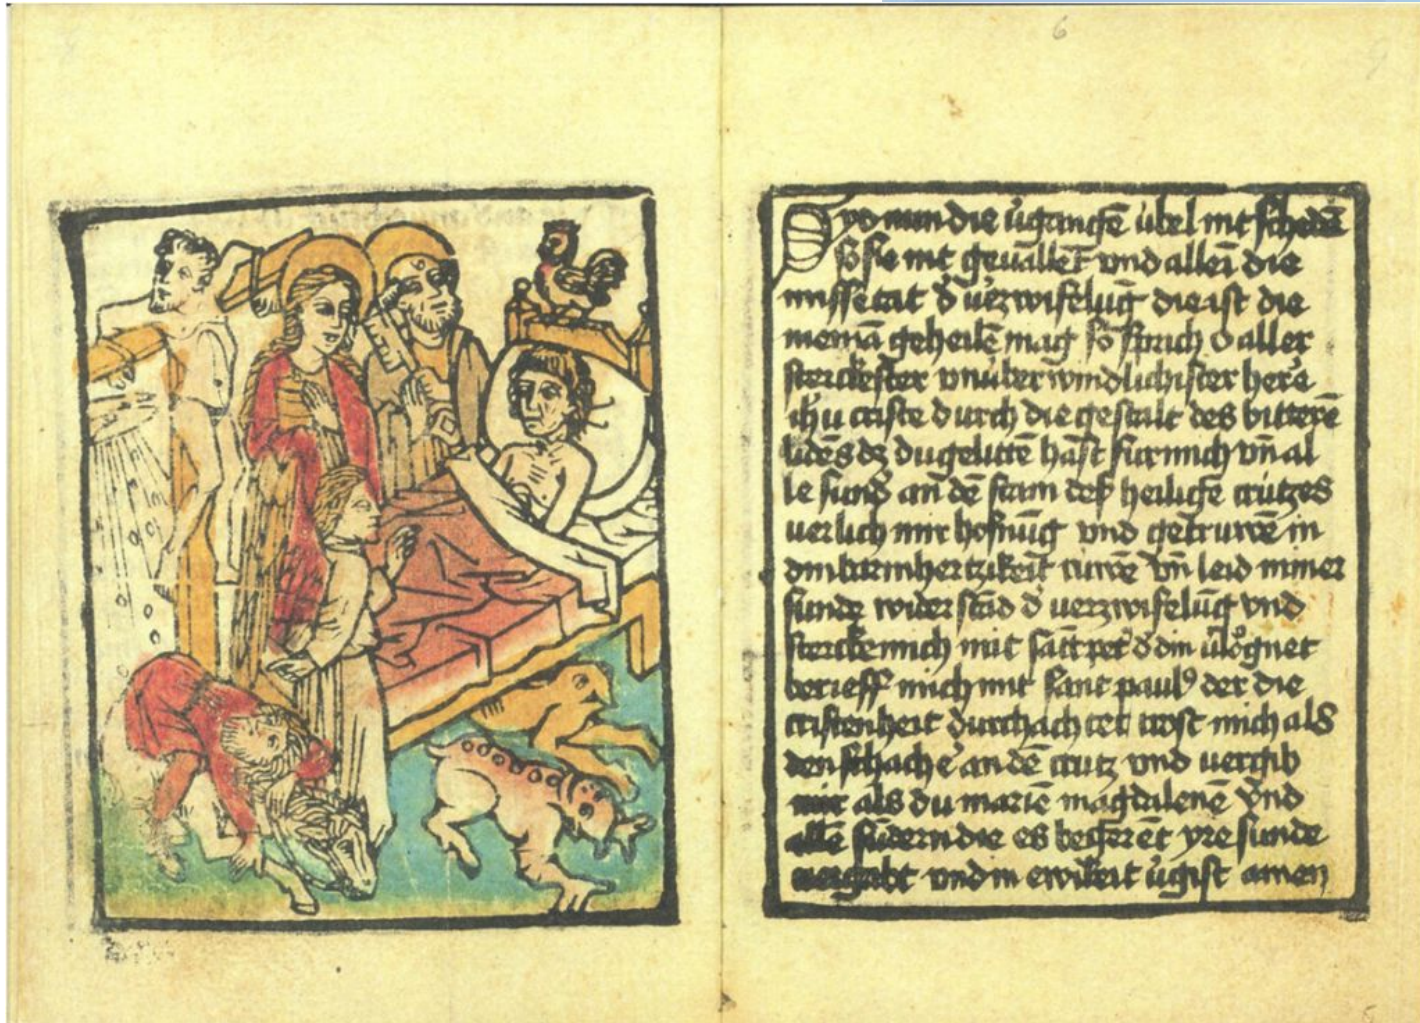 6
Syd nun die v̄gangē v̈bel nit schedē
so sie nit gevallēt vnd alleī die
missetat d̄ v̄zwiflūg die ist die
niemā geheilē mag so sprich o aller
sterckester vnuberwindlichister here
ihū criste durch die gestalt des bitterē
lidēs dz du gelittē hast fur mich vn̄ al
le sund̄ an dē stam des heiligē crützes
verlich mir hofnūg vnd getruwē in
din barmhertzikeit ruwē vn̄ leid miner
sunde widerstād d̄ verzwiflūg vnd
stercke mich mit sātt pet̄ d̄ din v̄lognet
berieff mich mit sant paul9 der die
cristenheit durchachtet trost mich als
den schachē an dē crutz vnd vergib
mir als du mariē magdalenē vnd
alle sūdern die es begerēt yre sunde
vergabt vnd in ewikeit v̄gist amen